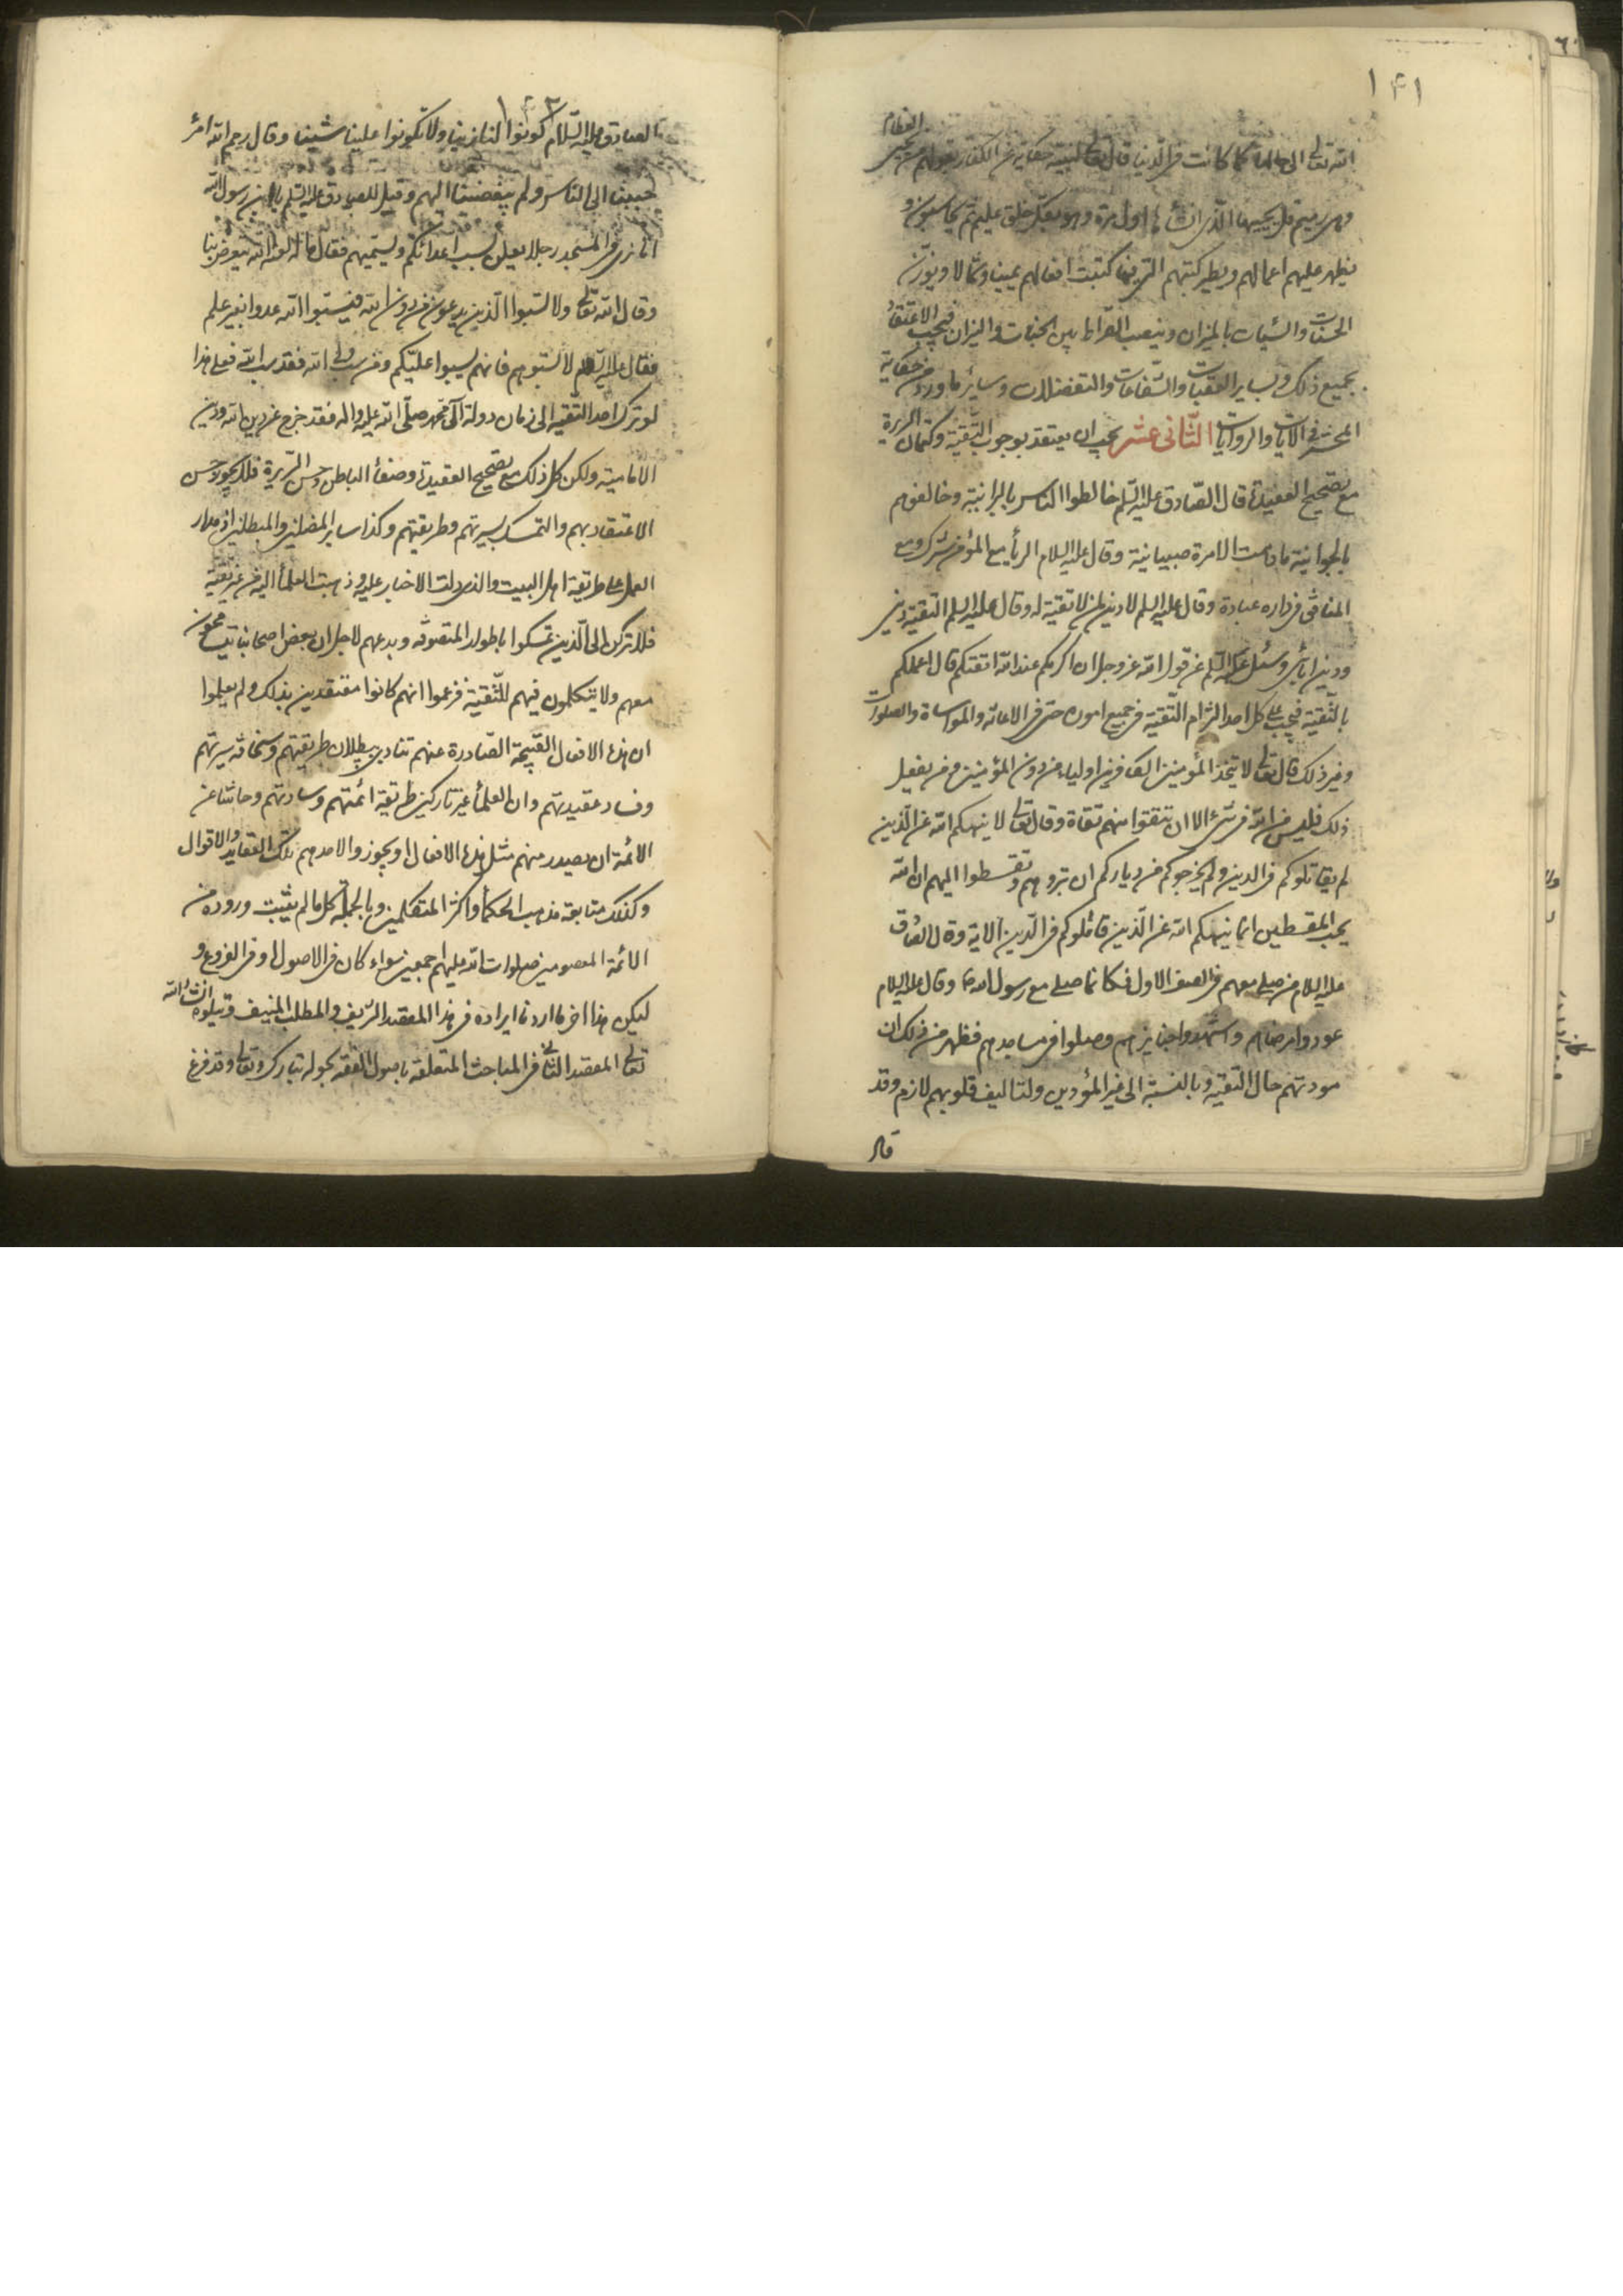 ١٤١
الله تعالى الى حالها كما كانت في الدنيا قال تعالى لنبيه حكاية عن الكفار بقولهم من يحيى العظام
وهى رميم قل يحييها الذى انشأها اول مرة وهو بكل خلق عليم ثم يحاسبون و
يظهر عليهم اعمالهم ويطير كتبهم التى فيها كتبت افعالهم يمينا وشمالا ويوزن
الحسنات والسيئات بالميزان وينصب الصراط بين الجنات والنيران فيجب الاعتقاد
بجميع ذلك وبساير العقبات والشفاعات والتفضلات وساير ما ورد من حكاية
المحشر فى الآيات والروايات الثانى عشر يجب ان يعتقد بوجوب التقية وكتمان السريرة
مع تصحيح العقيدة قال الصادق عليه السلم خالطوا الناس بالبرانية وخالفوهم
بالجوانية ما دامت الامرة صبيانية وقال عليه السلام الريأ مع المؤمن شرك ومع
المنافق فى داره عبادة وقال عليه السلم لا دين لمن لا تقية له وقال عليه السلم التقية دينى
ودين آبائى وسئل عليه السلم عن قول الله عز وجل ان اكرمكم عند الله اتقيكم قال اعملكم
بالتقية فيجب على كل احد التزام التقية فى جميع اموره حتى فى الاعانه والمواساة والصلوات
وغير ذلك قال تعالى لا يتخذ المؤمنين الكافرين اولياء من دون المؤمنين ومن يفعل
ذلك فليس من الله فى شئ الا ان تتقوا منهم تقاة وقال تعالى لا ينهيكم الله عن الذين
لم يقاتلوكم فى الدين ولم يخرجوكم من دياركم ان تبروهم وتقسطوا اليهم ان الله
يحب المقسطين انما ينهيكم الله عن الذين قاتلوكم فى الدين الاية وقال الصادق
عليه السلام من صلى معهم فى الصف الاول فكانما صلى مع رسول الله ص وقال عليه السلام
عودوا مرضاهم واشهدوا جنايزهم وصلوا فى مساجدهم فظهر من ذلك ان
مودتهم حال التقية وبالنسبة الى غير المؤدين ولتاليف قلوبهم لازم وقد
قال
١٤٢
الصادق عليه السلام كونوا لنا زينا ولا تكونوا علينا شينا وقال رحم الله امرء
حببنا الى الناس ولم يبغضنا اليهم وقيل للصادق عليه السلم يا بن رسول الله
انا نرى فى المسجد رجلا يعلن بسب اعدائكم ويسميهم فقال ما له لعنه الله يعرض بنا
وقال الله تعالى ولا تسبوا الذين يدعون من دون الله فيسبوا الله عدوا بغير علم
فقال عليه السلام لا تسبوهم فانهم يسبوا عليكم ومن سب ولى الله فقد سب الله فعلى هذا
لو ترك احد التقيه الى زمان دولة آل محمد صلى الله عليه واله فقد خرج عن دين الله ودين
الامامية ولكن كل ذلك مع تصحيح العقيدة وصفأ الباطن وحسن السريرة فلا يجوز حسن
الاعتقاد بهم والتمسك بسيرتهم وطريقتهم وكذا ساير المضلين والمبطلين اذ مدار
العمل على طريقة اهل البيت والذى دلت الاخبار عليه وذهبت العلمأ اليه من غير تقية
فلا تركن الى الذين تمسكوا باطوار المتصوفه وبدعهم لاجل ان بعض اصحابنا يتسامحون
معهم ولا يتكلمون فيهم للتقية فزعموا انهم كانوا معتقدين بذلك ولم يعلموا
ان هذه الافعال القبيحة الصادرة عنهم تنادى ببطلان طريقتهم وسخافة سيرتهم
وفساد عقيدتهم وان العلمأ غير تاركين طريقة ائمتهم وسادتهم وحاشا عن
الائمة ان يصدر منهم مثل هذه الافعال او يجوزوا لاحدهم تلك العقايد والاقوال
وكذلك متابعة مذهب الحكمأ واكثر المتكلمين وبالجملة كل ما لم يثبت وروده من
الائمة المعصومين صلوات الله عليهم اجمعين سواء كان فى الاصول او فى الفروع و
ليكن هذا اخر ما اردنا ايراده فى هذا المقصد الشريف والمطلب المنيف ويتلوه انشأ الله
تعالى المقصد الثانى فى المباحث المتعلقة باصول الفقه بحوله تبارك وتعالى وقد فرغ